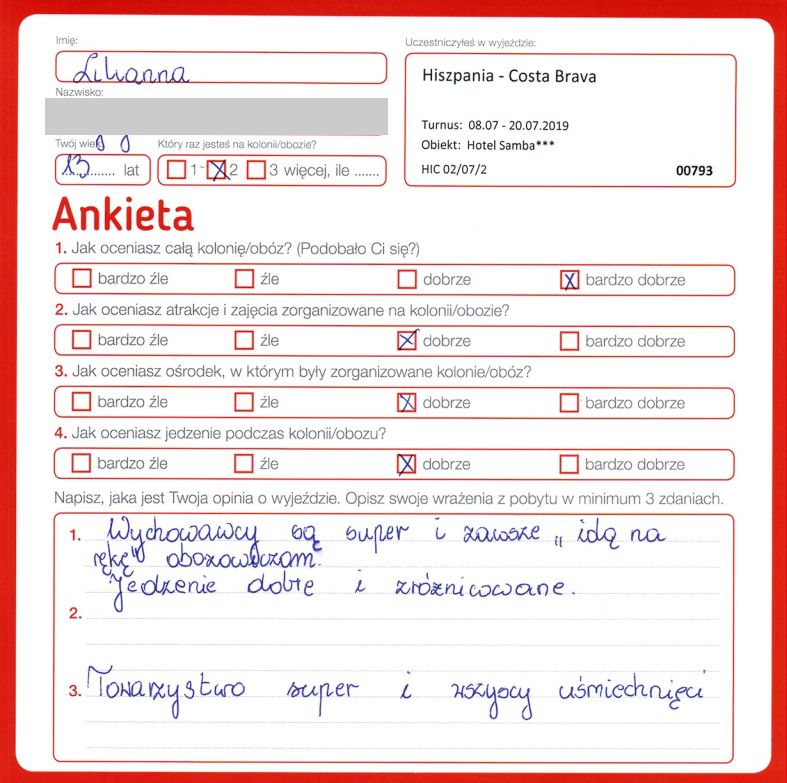 Imię:
Lilianna
Nazwisko:
Twój wiek
Który raz jesteś na kolonii/obozie?
13 lat
1 2 3 więcej, ile .......
Uczestniczyłeś w wyjeździe:
Hiszpania - Costa Brava
Turnus: 08.07 - 20.07.2019
Obiekt: Hotel Samba***
HIC 02/07/2 00793
Ankieta
1. Jak oceniasz całą kolonię/obóz? (Podobało Ci się?)
bardzo źle źle dobrze bardzo dobrze
2. Jak oceniasz atrakcje i zajęcia zorganizowane na kolonii/obozie?
bardzo źle źle dobrze bardzo dobrze
3. Jak oceniasz ośrodek, w którym były zorganizowane kolonie/obóz?
bardzo źle źle dobrze bardzo dobrze
4. Jak oceniasz jedzenie podczas kolonii/obozu?
bardzo źle źle dobrze bardzo dobrze
Napisz, jaka jest Twoja opinia o wyjeździe. Opisz swoje wrażenia z pobytu w minimum 3 zdaniach.
1. Wychowawcy są super i zawsze „idą na
rękę" obozowiczom.
Jedzenie dobre i zróżnicowane.
2.
3. Towarzystwo super i wszyscy uśmiechnięci